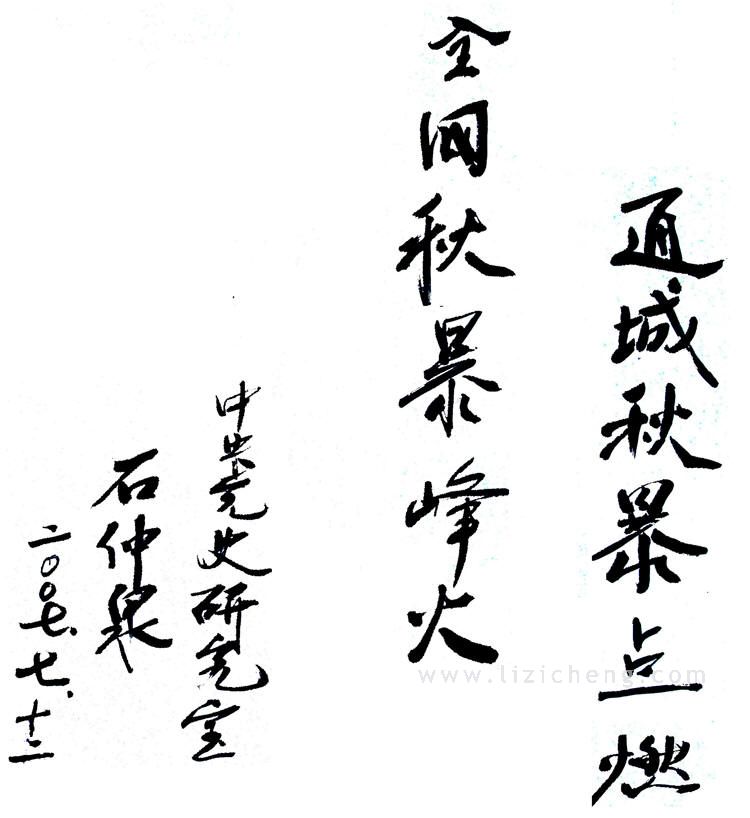 通城秋暴点燃
全国秋暴峰火
中央党史研究室
石仲泉
二〇〇七.七.十二
www.lizicheng.com